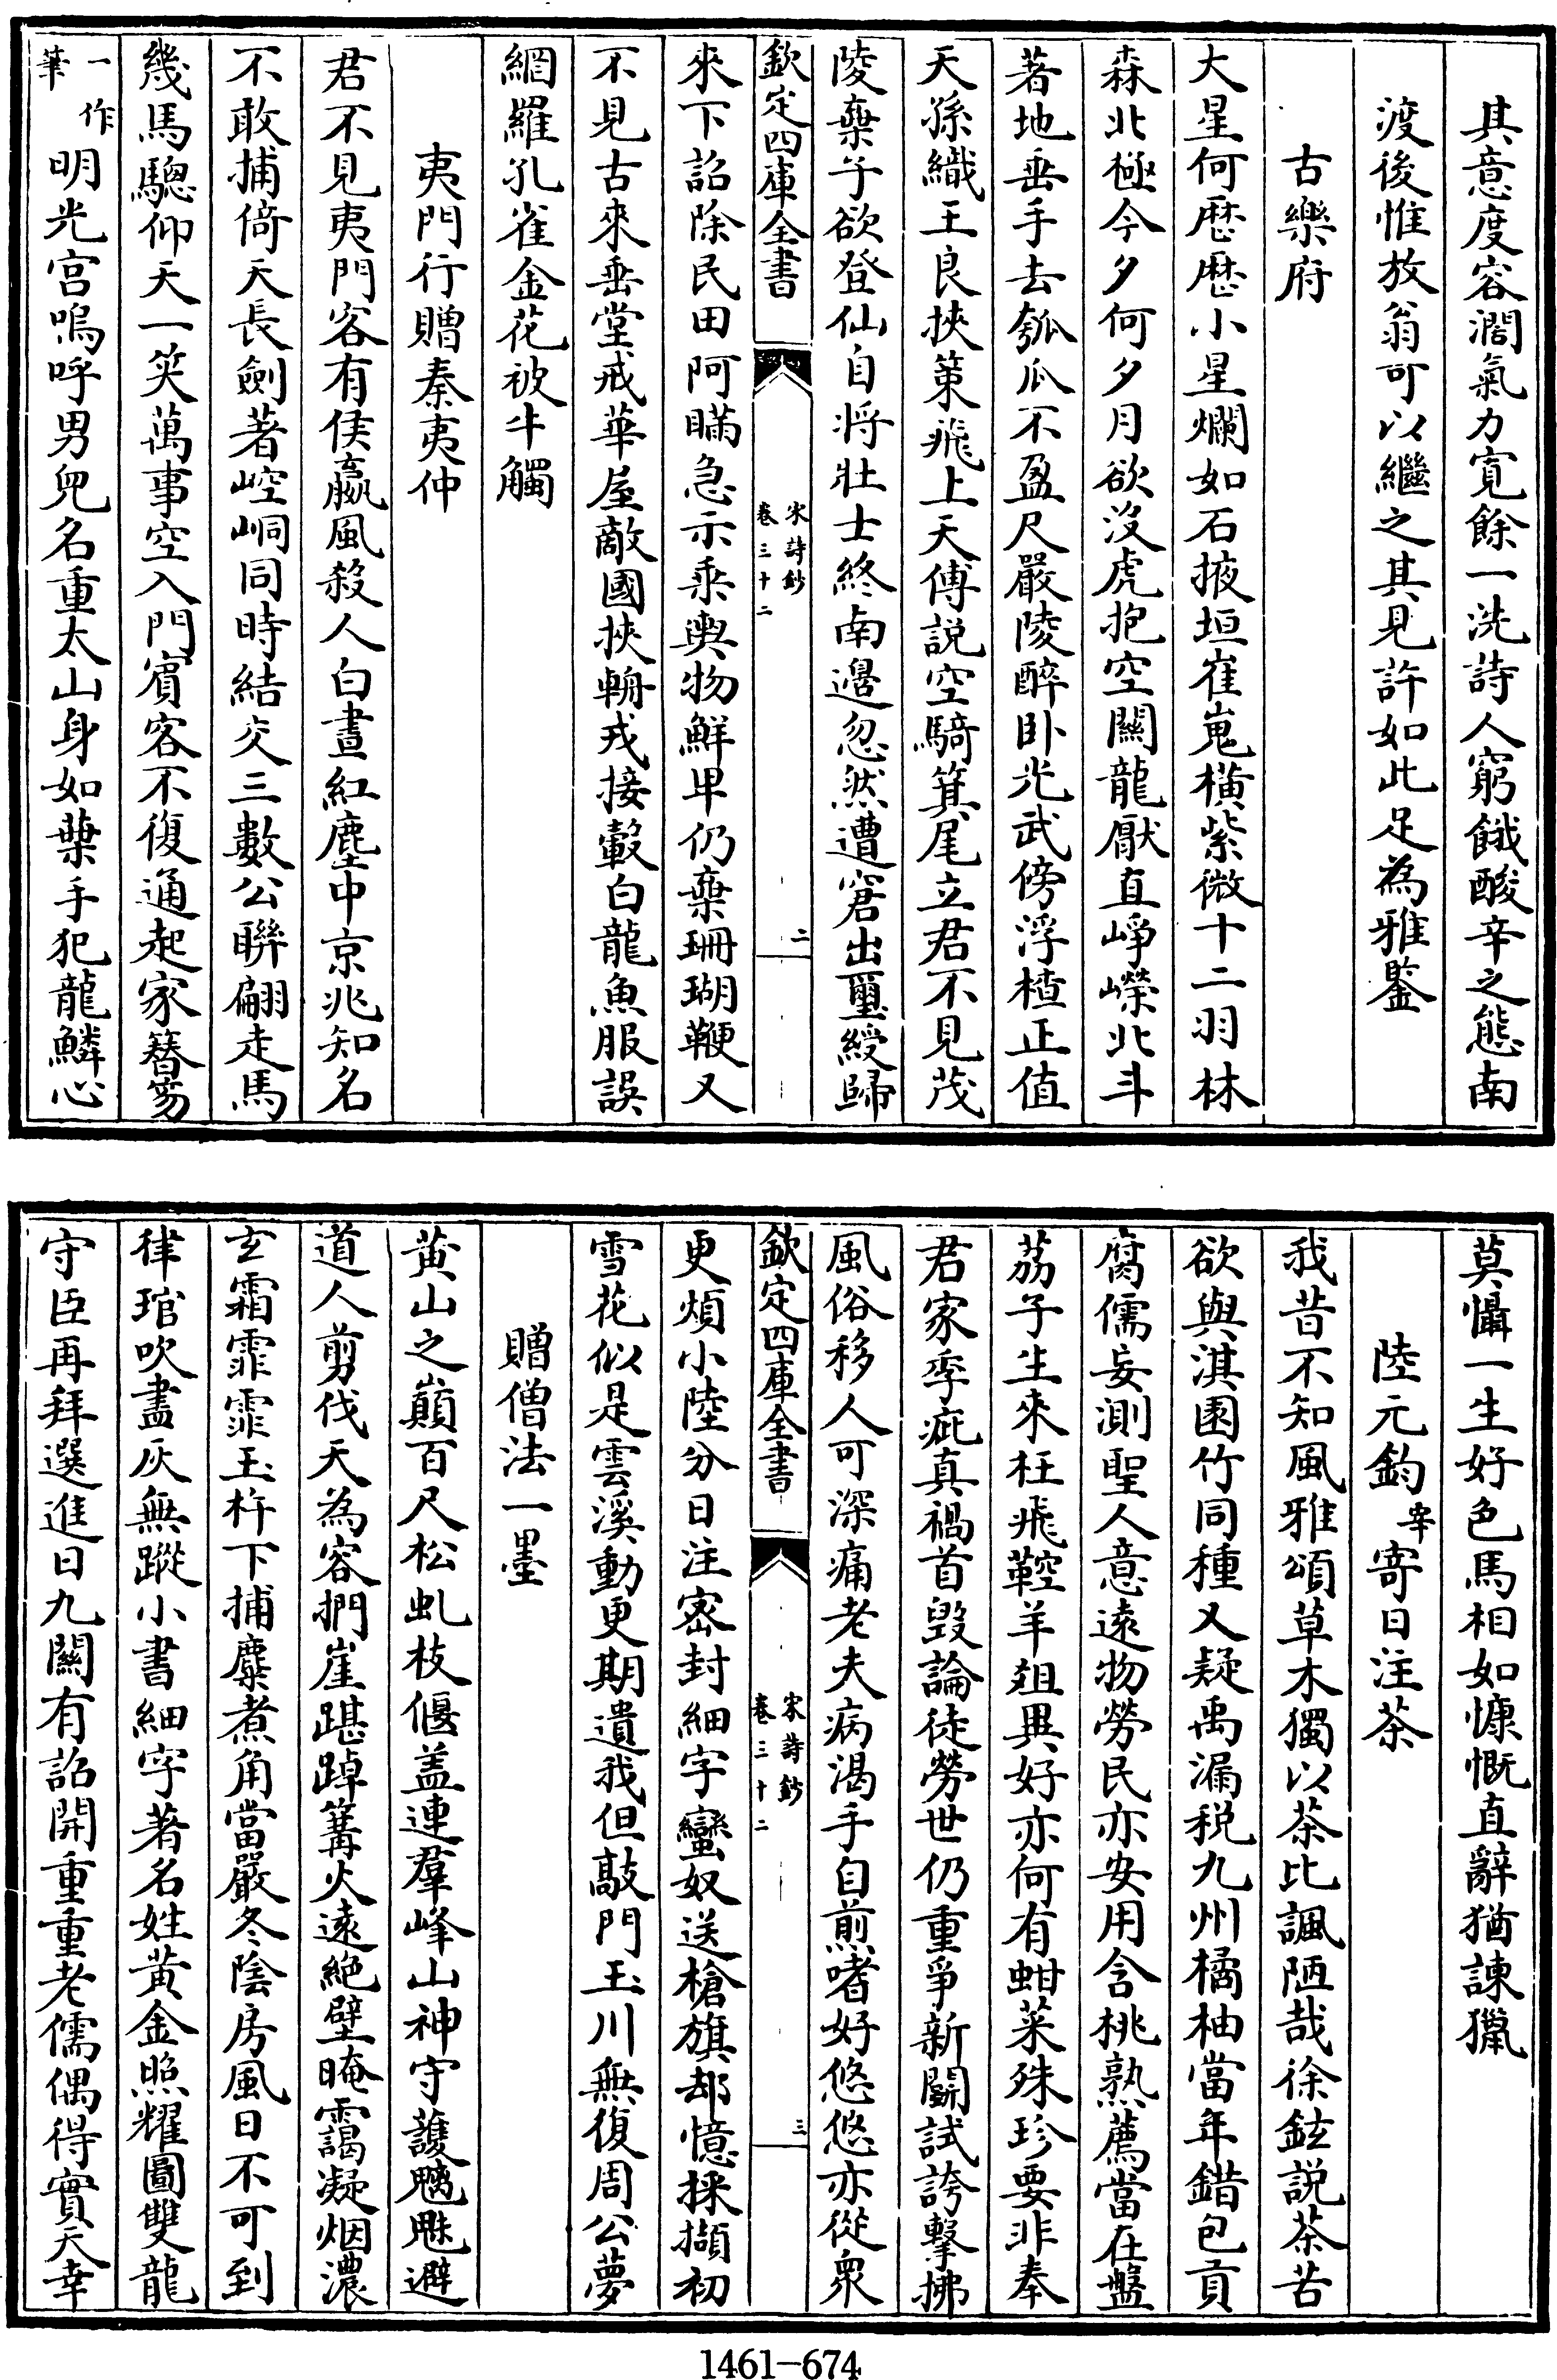 其意度容濶氣力寛餘一洗詩人窮餓酸辛之態南
渡後惟放翁可以繼之其見許如此足為雅鑒
古樂府
大星何歴歴小星爛如石掖垣崔嵬横紫微十二羽林
森北極今夕何夕月欲沒虎抱空關龍厭直崢嶸北斗
著地垂手去瓠瓜不盈尺嚴陵醉卧光武傍浮楂正值
天孫織王良挾策飛上天傅説空騎箕尾立君不見茂
陵棄子欲登仙自将壯士終南邉忽然遭窘出璽綬歸
欽定四庫全書
宋詩鈔
卷三十二
二
來下詔除民田阿瞞急示乘輿物鮮卑仍棄珊瑚鞭又
不見古來垂堂戒華屋敵國挾輈戎接轂白龍魚服誤
網羅孔雀金花被牛觸
夷門行贈秦夷仲
君不見夷門客有侯嬴風殺人白晝紅塵中京兆知名
不敢捕倚天長劍著崆峒同時結交三數公聯翩走馬
幾馬驄仰天一笑萬事空入門賓客不復通起家簪笏
一作
筆
明光宮嗚呼男兒名重太山身如葉手犯龍鱗心
莫懾一生好色馬相如慷慨直辭猶諫獵
陸元鈞宰寄日注茶
我昔不知風雅頌草木獨以茶比諷陋哉徐鉉説茶苦
欲與淇園竹同種又疑禹漏税九州橘柚當年錯包貢
腐儒妄測聖人意遠物勞民亦安用含桃熟薦當在盤
荔子生來枉飛鞚羊爼異好亦何有蚶菜殊珍要非奉
君家季疵真禍首毁論徒勞世仍重爭新鬭試誇擊拂
風俗移人可深痛老夫病渴手自煎嗜好悠悠亦從衆
欽定四庫全書
宋詩鈔
卷三十二
三
更煩小陸分日注宻封細字蠻奴送槍旗却憶採擷初
雪花似是雲溪動更期遺我但敲門玉川無復周公夢
贈僧法一墨
黄山之巔百尺松虬枝偃盖連羣峰山神守護魑魅避
道人剪伐天為容捫崖踸踔篝火遠絶壁晻靄凝烟濃
玄霜霏霏玉杵下捕麋煮角當嚴冬陰房風日不可到
律琯吹盡灰無蹤小書細字著名姓黄金照耀圖雙龍
守臣再拜選進日九關有詔開重重老儒偶得實天幸
1461-674